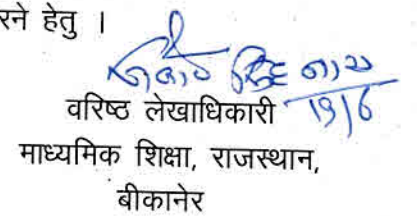 रने हेतु ।
19/6
वरिष्ठ लेखाधिकारी
माध्यमिक शिक्षा, राजस्थान,
बीकानेर